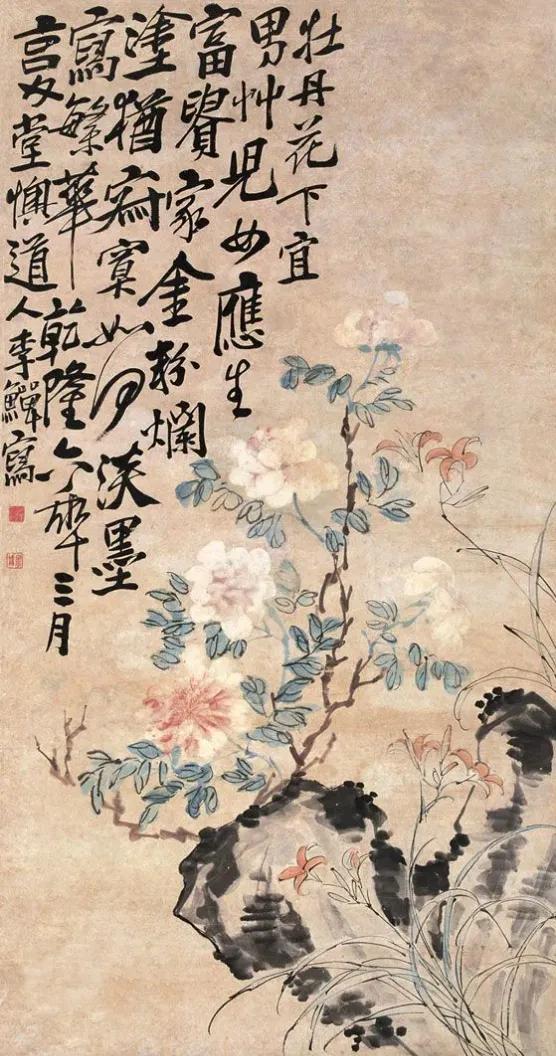 牡丹花下宜
男艸兒女應生
富貴家金粉爛
塗猶寂寞如何淡墨
寫繁華乾隆六年三月
复堂懊道人李鱓寫